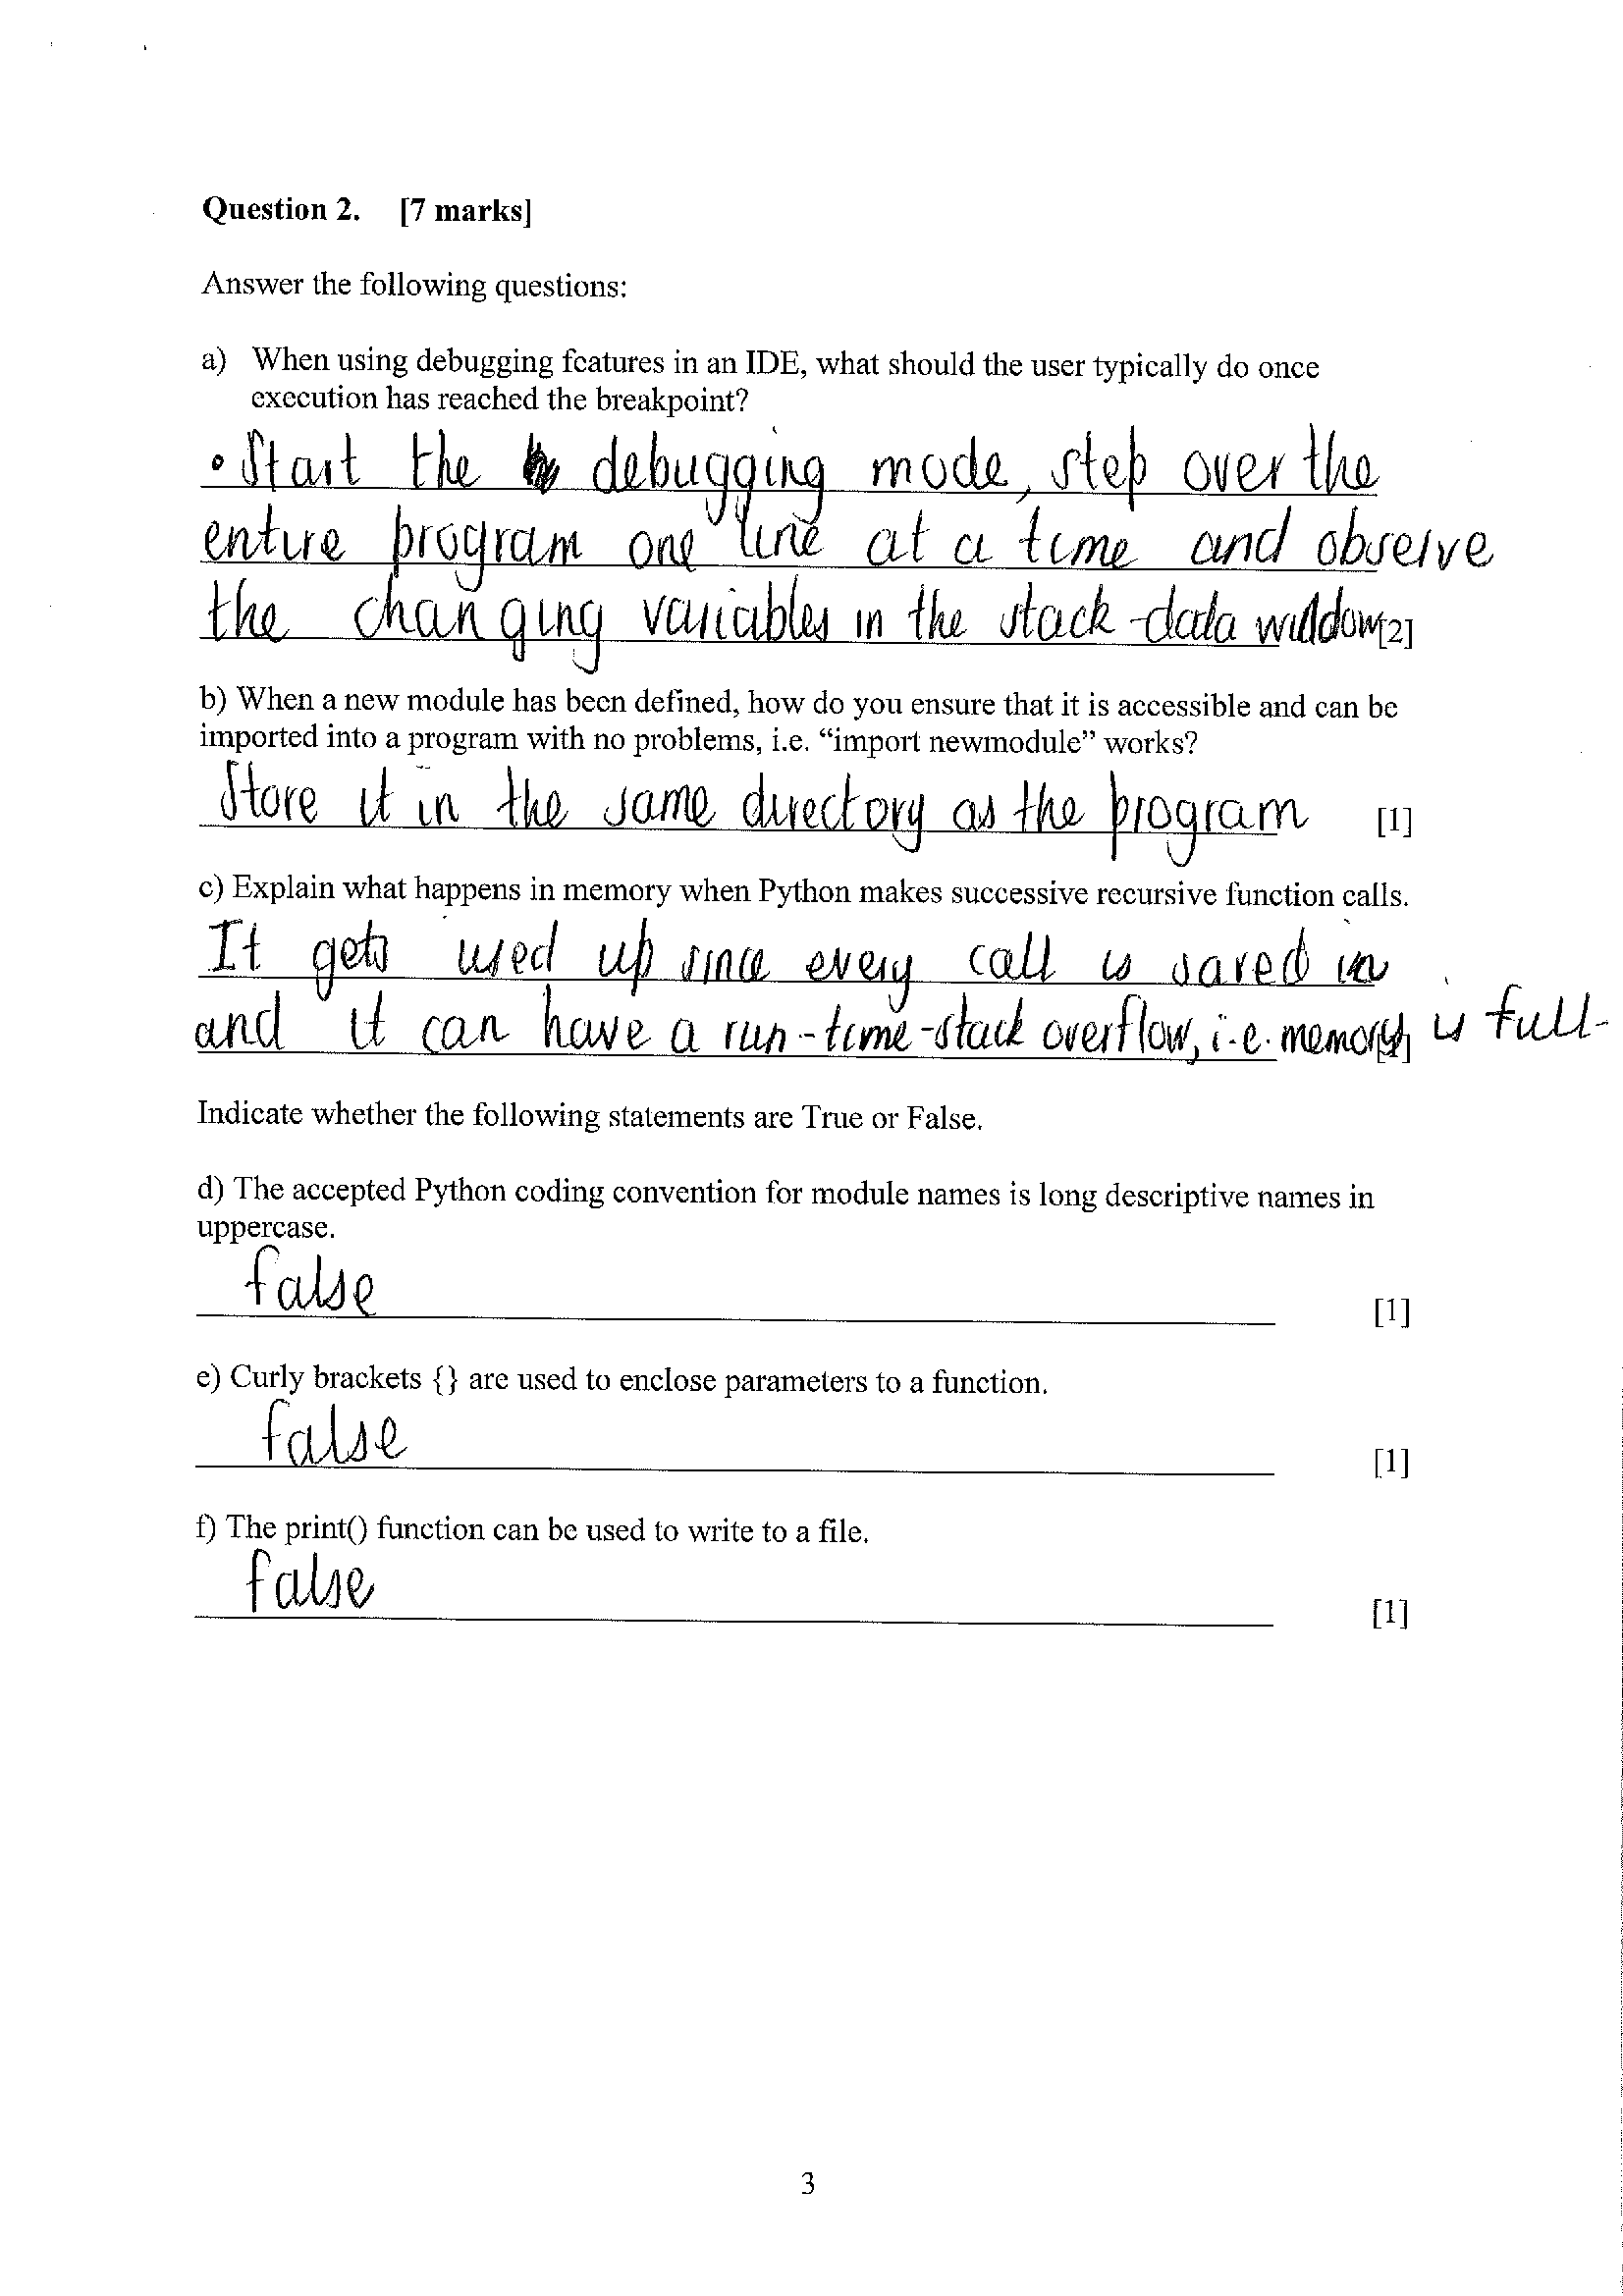 Question 2. [7 marks]
Answer the following questions:
a) When using debugging features in an IDE, what should the user typically do once
execution has reached the breakpoint?
• Start the debugging mode, step over the
entire program one line at a time and observe
the changing variables in the stack-data window [2]
b) When a new module has been defined, how do you ensure that it is accessible and can be
imported into a program with no problems, i.e. “import newmodule” works?
Store it in the same directory as the program [1]
c) Explain what happens in memory when Python makes successive recursive function calls.
It gets used up since every call is saved in
and it can have a run-time-stack overflow, i.e. memory is full.
Indicate whether the following statements are True or False.
d) The accepted Python coding convention for module names is long descriptive names in
uppercase.
false
[1]
e) Curly brackets {} are used to enclose parameters to a function.
false
[1]
f) The print() function can be used to write to a file.
false
[1]
3